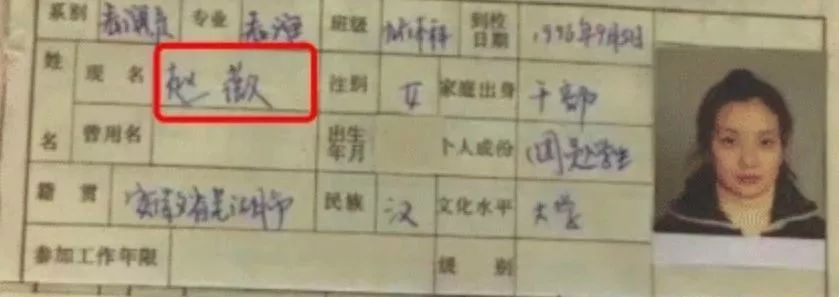 系别 表演系 专业 表演 班级 96本科 到校日期 1996年9月
姓名 现名 赵薇 性别 女 家庭出身 干部
曾用名 出生年月 个人成份 学生
籍贯 安徽省芜湖市 民族 汉 文化水平 大学
参加工作年限 级别